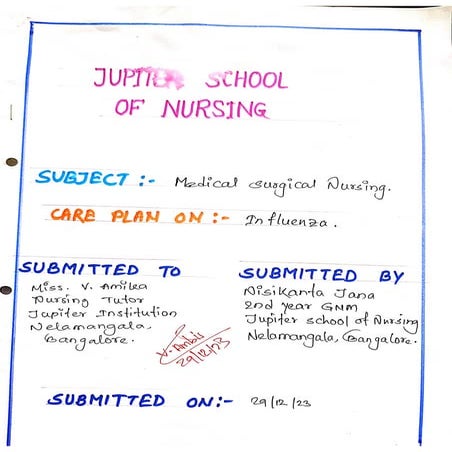 JUPITER SCHOOL
OF NURSING
SUBJECT :- Medical surgical Nursing.
CARE PLAN ON :- Influenza.
SUBMITTED TO
Miss. V. Ambka
Nursing Tutor
Jupiter Institution
Nelamangala,
Bangalore.
29/12/23
SUBMITTED BY
Nisikanta Jana
2nd year GNM
Jupiter school of Nursing
Nelamangala, Bangalore.
SUBMITTED ON:- 29/12/23